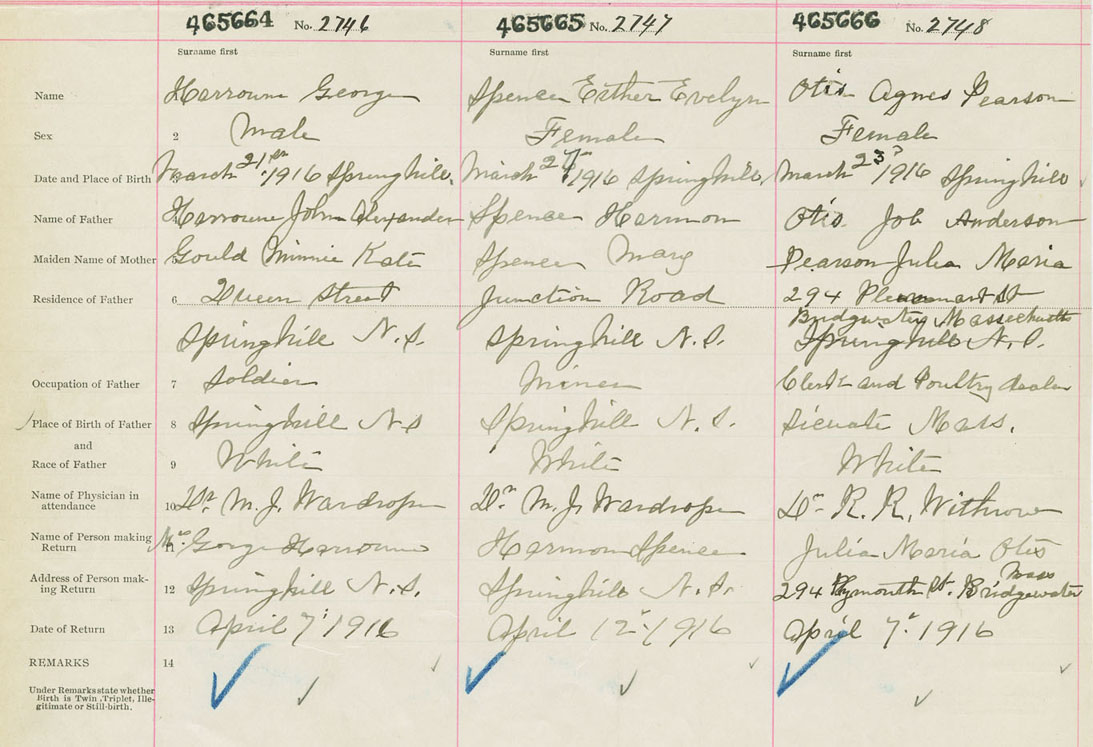 465664 No. 2746 465665 No. 2747 465666 No. 2748
Surname first Surname first Surname first
Name Harroun George Spence Esther Evelyn Otis Agnes Pearson
Sex 2 Male Female Female
Date and Place of Birth March 21st 1916 Springhill. March 1916 Springhill, March 23 1916 Springhill
Name of Father Harroun John Alexander Spence Harmon Otis Job Anderson
Maiden Name of Mother Gould Minnie Kate Spence Mary Pearson Julia Maria
Residence of Father 6 Queen Street Junction Road 294 St
Bridgwater Massechutts
Springhill N.S. Springhill N.S. Springhill N.S.
Occupation of Father 7 Soldier Miner Clerk and Poultry dealer
Place of Birth of Father 8 Springhill N.S Springhill N.S. Sicuate Mass.
and
Race of Father 9 White White White
Name of Physician in
attendance 10 Dr. M. J. Wardrope Dr. M. J. Wardrope Dr. R. R. Withrow
Name of Person making
Return 11 Mrs. Gorge Harroun Harmon Spence Julia Maria Otis
Address of Person mak-
ing Return 12 Springhill N.S. Springhill N.S. 294 Plymouth St. Bridgewater Mass
Date of Return 13 April 7" 1916 April 12" 1916 April 7" 1916
REMARKS 14
Under Remarks state whether
Birth is Twin, Triplet, Ille-
gitimate or Still-birth.